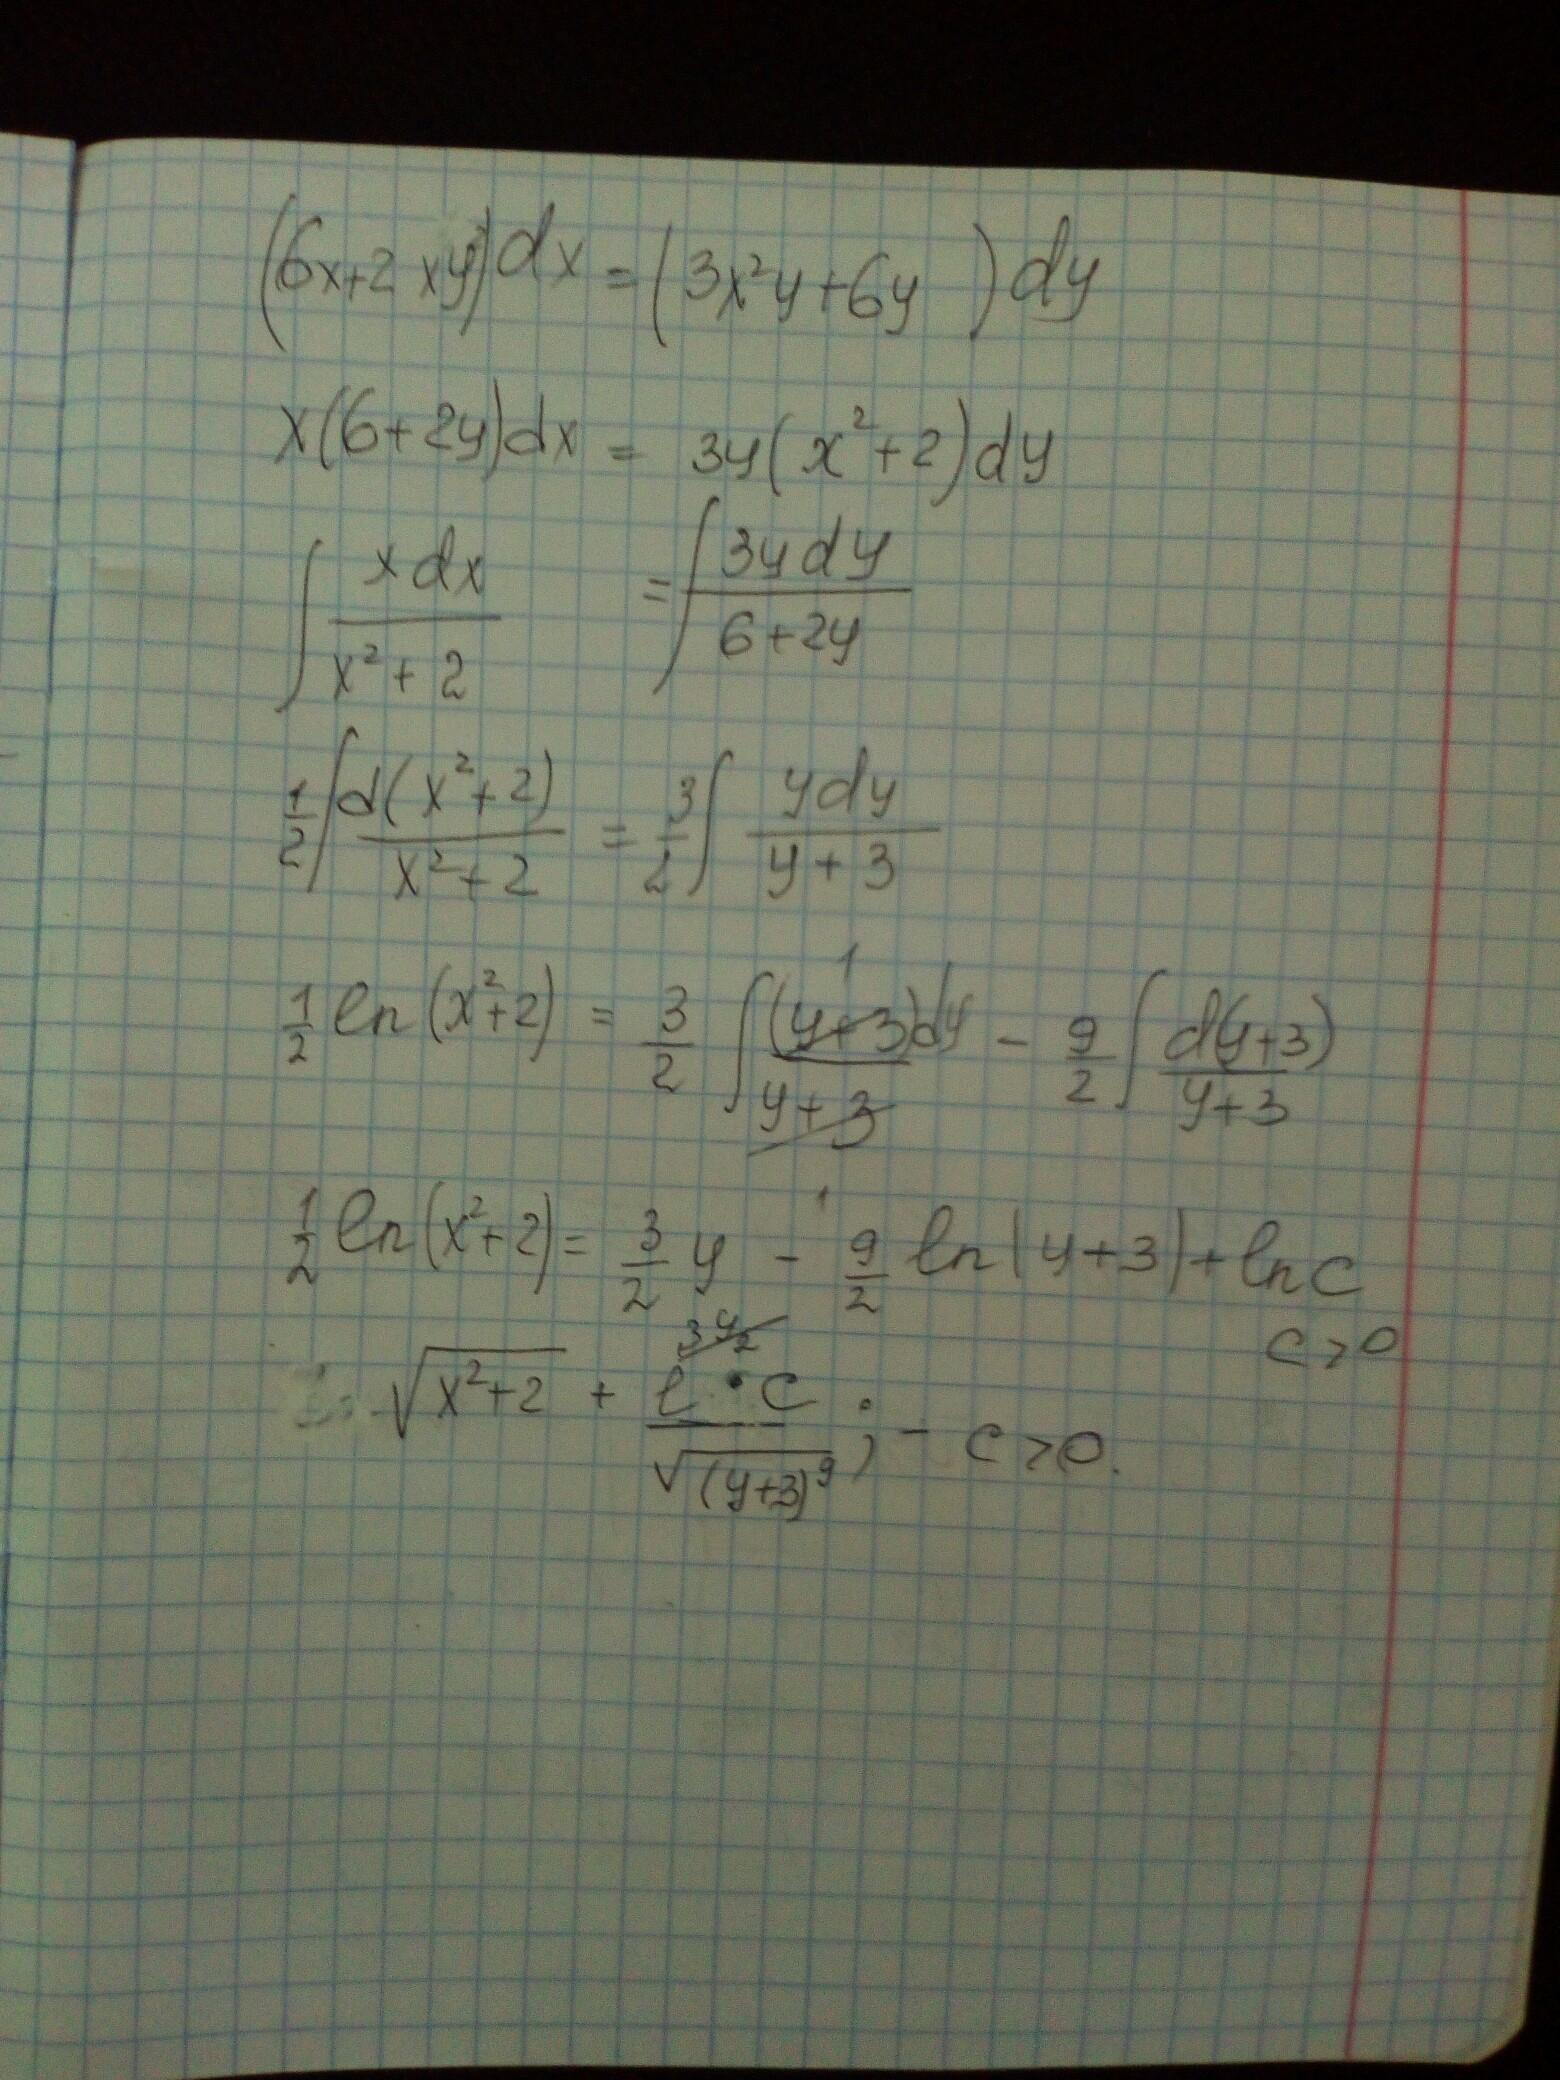 (6x+2xy)dx = (3x²y+6y)dy
x(6+2y)dx = 3y(x²+2)dy
∫ xdx/(x²+2) = ∫ 3ydy/(6+2y)
1/2 ∫ d(x²+2)/(x²+2) = 3/2 ∫ ydy/(y+3)
1/2 ln(x²+2) = 3/2 ∫ (y+3)dy/(y+3) - 9/2 ∫ d(y+3)/(y+3)
1/2 ln(x²+2) = 3/2 y - 9/2 ln|y+3| + ln c
c>0
√(x²+2) + e^(3y/2) · c / √((y+3)⁹) ; - c>0.